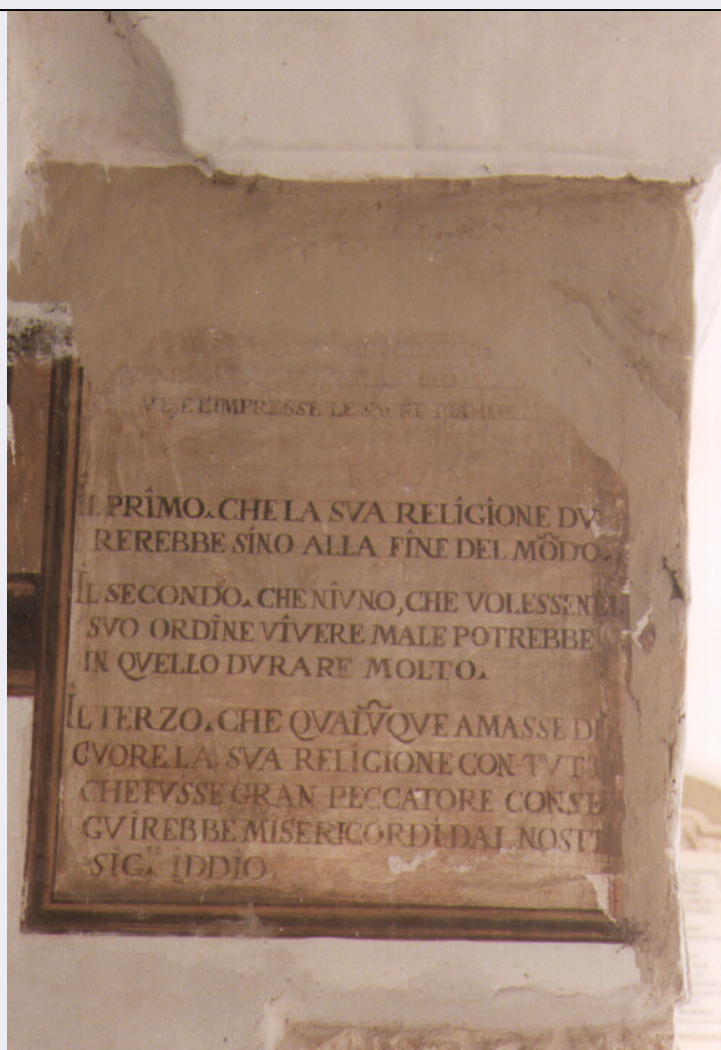 E L'IMPRESSE LE
IL PRIMO. CHE LA SVA RELIGIONE DV
REREBBE SINO ALLA FINE DEL MÕDO.
IL SECONDO. CHE NIVNO, CHE VOLESSE NEL
SVO ORDINE VIVERE MALE POTREBBE
IN QVELLO DVRARE MOLTO.
IL TERZO. CHE QVALṼQVE AMASSE DI
CVORE LA SVA RELIGIONE CON TVT
CHE FVSSE GRAN PECCATORE CONSE
GVIREBBE MISERICORDI DAL NOST
SIG.RE IDDIO.